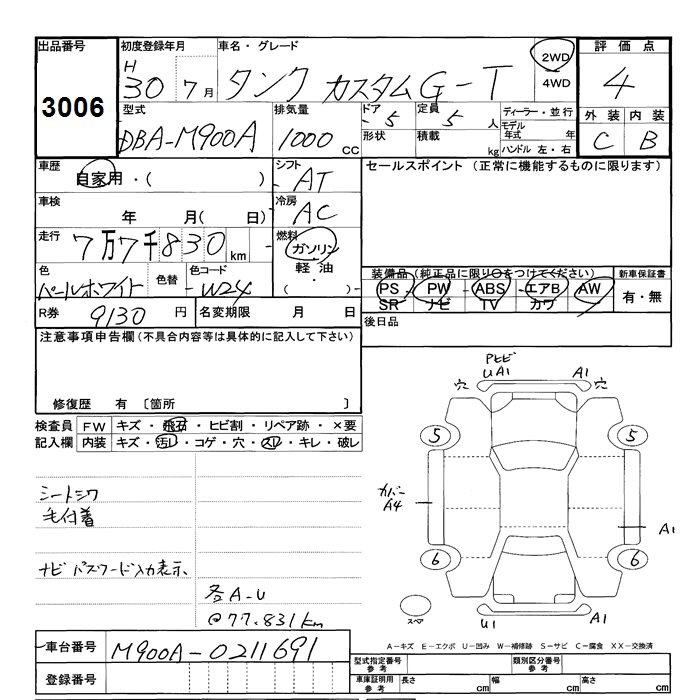 出品番号
3006
初度登録年月
H
30 7月
車名・グレード
タンク カスタムG-T
2WD
4WD
評価点
4
外装 内装
C B
型式
DBA-M900A
排気量
1000 cc
ドア 5
形状
定員 5 人
積載 kg
ディーラー・並行
モデル年式 年
ハンドル 左・右
車歴
自家用・( )
シフト
AT
セールスポイント (正常に機能するものに限ります)
車検
年 月( 日)
冷房
AC
走行
7万7千830km
燃料
ガソリン
軽油
・( )
色
パールホワイト
色替
色コード
W24
装備品 (純正品に限り○をつけてください)
PS PW ABS エアB AW
SR ナビ TV カワ
新車保証書
有・無
R券 9130 円
名変期限 月 日
後日品
注意事項申告欄(不具合内容等は具体的に記入して下さい)
修復歴 有 〔箇所 〕
検査員 FW キズ・飛石・ヒビ割・リペア跡・×要
記入欄 内装 キズ・汚レ・コゲ・穴・スレ・キレ・破レ
シートシワ
毛付着
ナビ パスワード入力表示、
各A-U
@77.831km
トビヒ
UA1
A1
穴 穴
5 5
カバー
A4
A1
6 6
スペア
U1
A1
A-キズ E-エクボ U-凹み W-補修跡 S-サビ C-腐食 XX-交換済
車台番号 M900A-0211691
登録番号
型式指定番号 参考
類別区分番号 参考
車庫証明用 参考
長さ cm 幅 cm 高さ cm